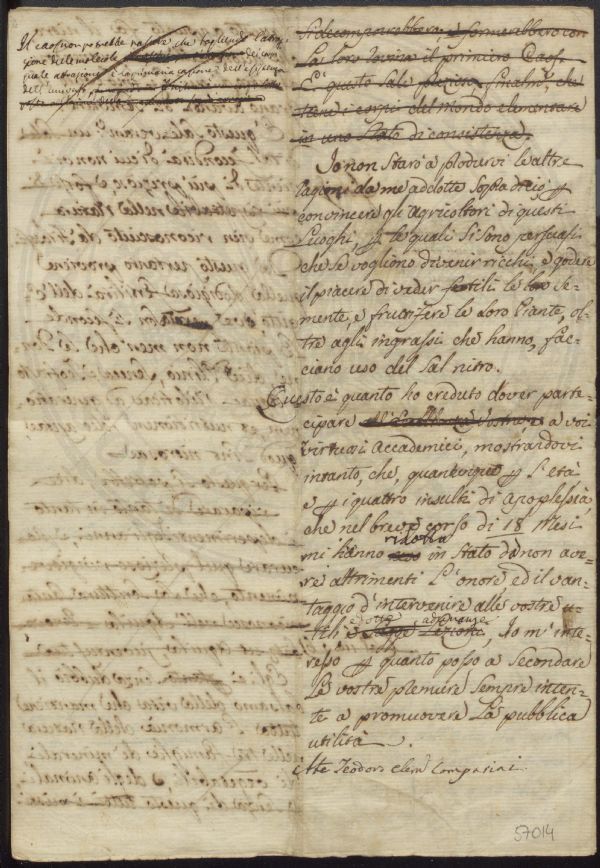 Il caos non potrebbe nascere che togliendo l'attra-
zione delle molecole dei corpi
quale attrazione è la primaria cagione dell'esistenza
dell'universo
Si decomporrebbero, e formerebbero con
la loro rovina il primiero Caos.
E' questo Sale finalm.e, che
tiene i corpi del Mondo elementare
in uno stato di consistenza.
Io non starò a produrvi le altre
ragioni da me addotte sopra di ciò p
convincere gli Agricoltori di questi
Luoghi, p le quali si sono persuasi
che se vogliono divenir ricchi, e godere
il piacere di veder fertili le loro se-
mente, e fruttifere le loro Piante, ol-
tre agli ingrassi che hanno, fac-
ciano uso del Sal nitro.
Questo è quanto ho creduto dover parte-
cipare a voi
virtuosi Accademici, mostrandovi
intanto, che, quantunque p l'età
e p i quattro insulti di Apoplessia,
che nel breve corso di 18 mesi
ridotto
mi hanno in stato da non ave-
re altrimenti l'onore ed il van-
taggio d'intervenire alle vostre u-
dotte adunanze
tili e sagge Lezioni, Io m'inte-
resso p quanto posso a secondare
le vostre premure sempre inten-
te a promuovere la pubblica
utilità.
Ate Teodoro Clem Comparini
57014